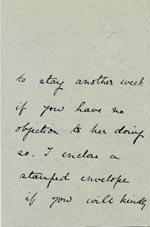 to stay another week
if you have no
objection to her doing
so. I enclose a
stamped envelope
if you will kindly